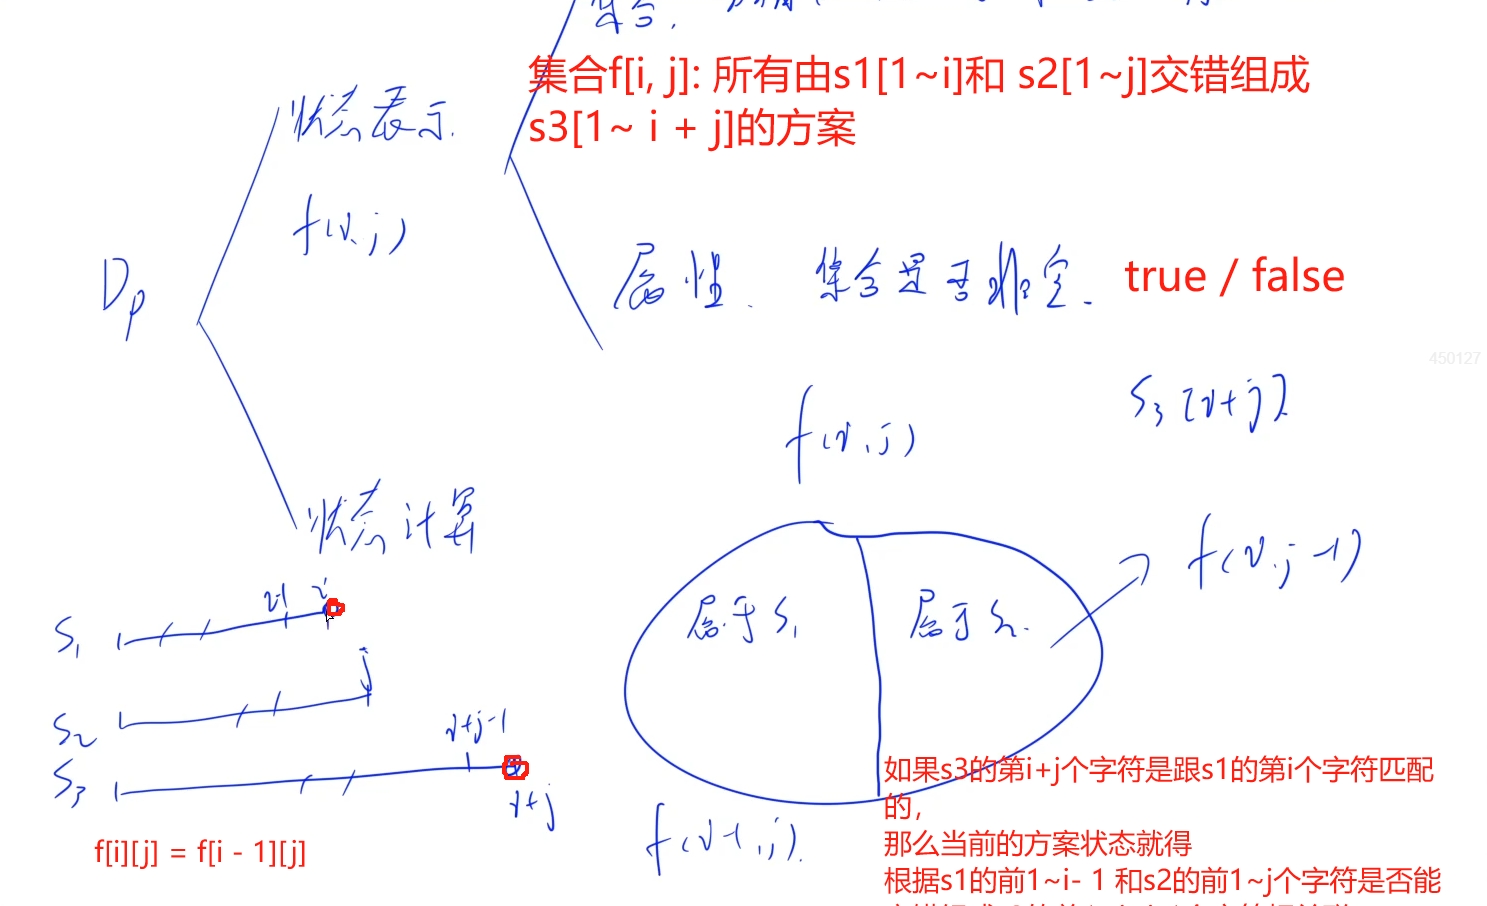 集合f[i, j]: 所有由s1[1~i]和 s2[1~j]交错组成
s3[1~ i + j]的方案
状态表示.
f(i, j)
Dp
属性. 集合是否非空. true / false
450127
S3[i+j]
f(i, j)
状态计算
f(i, j-1)
i-1 i
S1
属于S1 属于S2.
j
S2
i+j-1
S3
i+j
f(i-1, j).
如果s3的第i+j个字符是跟s1的第i个字符匹配
的，
那么当前的方案状态就得
根据s1的前1~i- 1 和s2的前1~j个字符是否能
f[i][j] = f[i - 1][j]